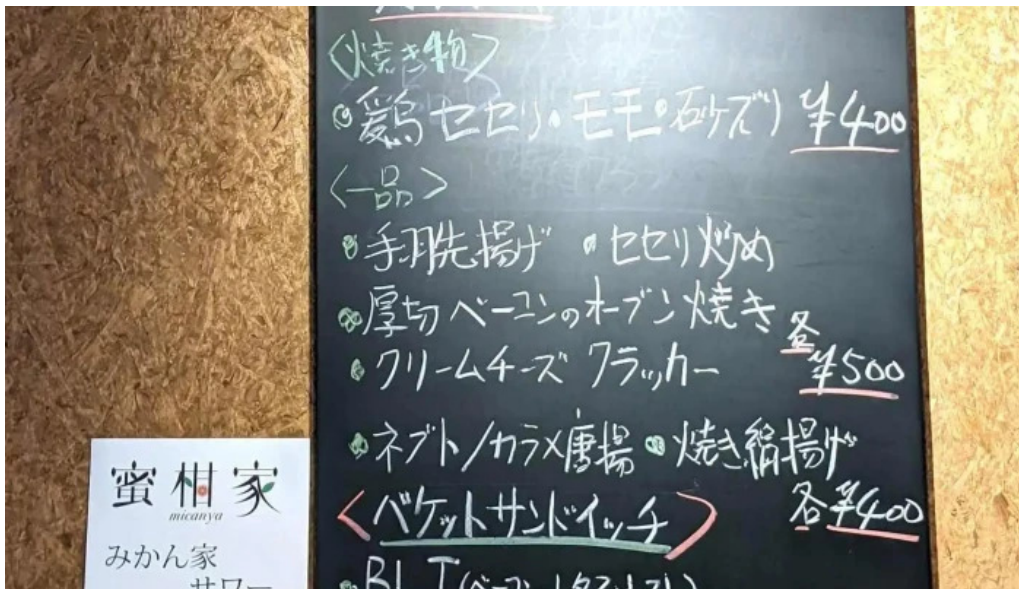 〈焼き物〉
・鶏セセリ・モモ・砂ケズリ ¥400
〈一品〉
・手羽先揚げ ・セセリ炒め
・厚切ベーコンのオーブン焼き
・クリームチーズ クラッカー
各¥500
・ネブトノカラメ唐揚 ・焼き絹揚げ
各¥400
〈バケットサンドイッチ〉
・BLT(ベーコンレタストマト)
蜜柑家
micanya
みかん家
サワー